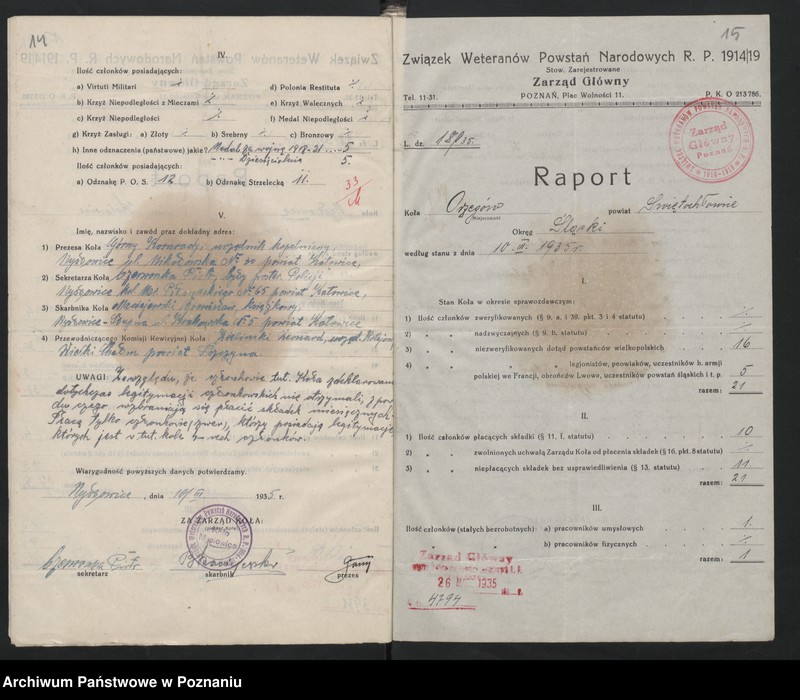 14
IV.
Ilość członków posiadających:
a) Virtuti Militari ٪ d) Polonia Restituta ٪
b) Krzyż Niepodległości z Mieczami ٪ e) Krzyż Walecznych ٪
c) Krzyż Niepodległości ٪ f) Medal Niepodległości ٪
g) Krzyż Zasługi: a) Złoty ٪ b) Srebrny ٪ c) Bronzowy ٪
h) Inne odznaczenia (państwowe) jakie? Medal za wojnę 1918-21 5
Dziesięciolecia 5.
Ilość członków posiadających:
a) Odznakę P. O. S. 12 b) Odznakę Strzelecką 11.
33
V.
Imię, nazwisko i zawód praz dokładny adres:
1) Prezesa Koła Górny Konrad, urzędnik kopalniany,
pl. Mikołowska No powiat Katowice,
2) Sekretarza Koła Czerwonka Piotr, Policji
No 45 powiat Katowice,
3) Skarbnika Koła Maciejewski książkowy,
ul. Krakowska No 5 powiat Katowice
4) Przewodniczącego Komisji Rewizyjnej Koła Leonard, urzęd. Kolejow.
Wielki Chełm powiat Pszczyna
UWAGI: Ze względu, że członkowie tut. Koła zdeklarowani
dotychczas legitymacji członkowskich nie otrzymali, z powo
du czego wzbraniają się płacić składek miesięcznych.
Płacą tylko członkowie, którzy posiadają legitymacje
których jest w tut. kole członków.
Wiarygodność powyższych danych potwierdzamy.
, dnia 10/III 1935 r.
ZA ZARZĄD KOŁA:
Czerwonka Piotr
sekretarz skarbnik prezes
15
Związek Weteranów Powstań Narodowych R. P. 1914/19
Stow. Zarejestrowane
Zarząd Główny
Tel. 11-31. POZNAŃ, Plac Wolności 11. P. K. O 213786.
Zarząd
Główny
Poznań
L. dz. 18/35.
Raport
Koła Orzegów powiat Świętochłowice
(miejscowość)
Okręg Śląski
według stanu z dnia 10. III. 1935 r.
I.
Stan Koła w okresie sprawozdawczym:
1) Ilość członków zweryfikowanych (§ 9. a. i 39. pkt. 3 i 4 statutu) ٪
2) „ „ nadzwyczajnych (§ 9. b. statutu) ٪
3) „ „ niezweryfikowanych dotąd powstańców wielkopolskich 16
4) „ „ „ „ legjonistów, peowiaków, uczestników b. armji
polskiej we Francji, obrońców Lwowa, uczestników powstań śląskich i t. p. 5
razem: 21
II.
1) Ilość członków płacących składki (§ 11. f. statutu) 10
2) „ „ zwolnionych uchwałą Zarządu Koła od płacenia składek (§ 16. pkt. 8 statutu) ٪
3) „ „ niepłacących składek bez usprawiedliwienia (§ 13. statutu) 11
razem: 21
III.
Ilość członków (stałych bezrobotnych): a) pracowników umysłowych 1.
b) pracowników fizycznych ٪
razem: 1
Zarząd Główny
26 1935
4794
Archiwum Państwowe w Poznaniu